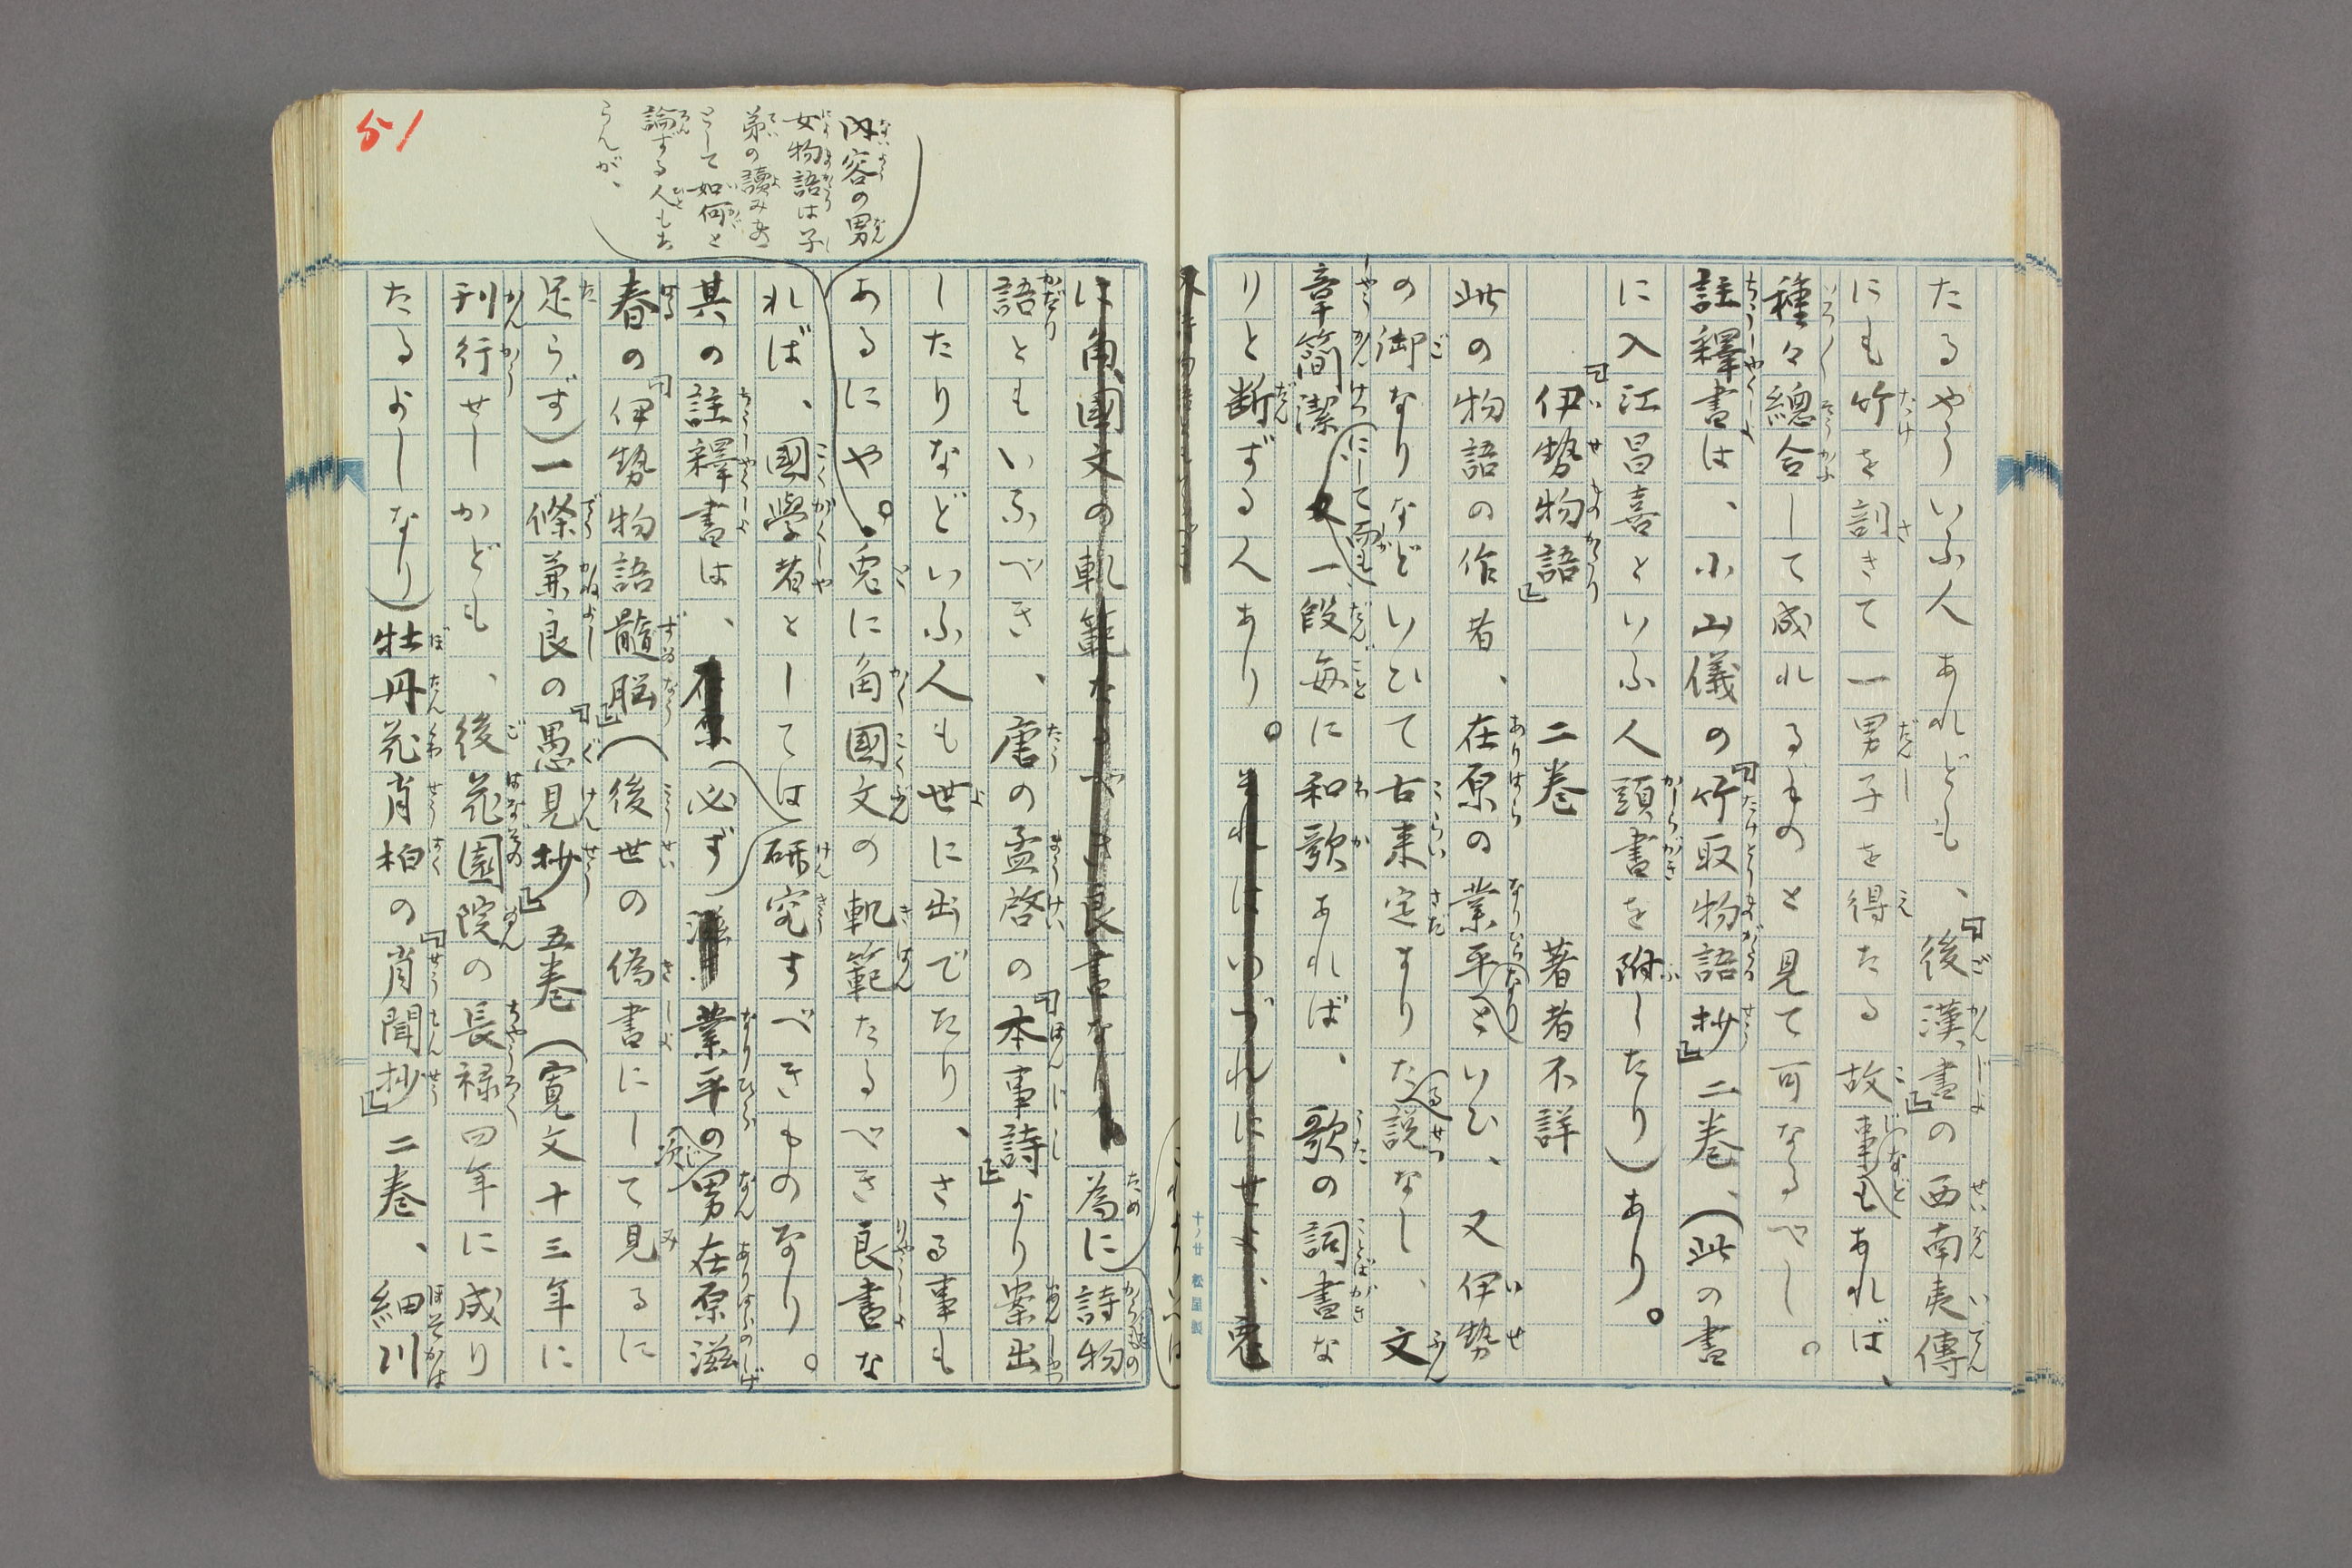 たるやういふ人あれども、『後漢書』の西南夷傳
にも竹を剖きて一男子を得たる故事などもあれば、
種々總合して成れるものと見て可なるべし。
註釋書は、小山儀の『竹取物語抄』二巻、(此の書
に入江昌喜といふ人頭書を附したり)あり。
『伊勢物語』 二巻 著者不詳
此の物語の作者、在原の業平なりといひ、又伊勢
の御なりなどいひて古来定まりたる説なし、文
章簡潔にして而も一段毎に和歌あれば、歌の詞書な
りと断ずる人あり。それはいづれにせよ、兎
これよりいへば
に角國文の軌範たるべき良書なり
為に詩物
語ともいふべき、唐の孟啓の『本事詩』より案出
したりなどいふ人も世に出でたり、さる事も
あるにや。兎に角國文の軌範たるべき良書な
内容の男
女物語は子
弟の讀みも
として如何と
論ずる人もあ
らんが、
れば、國學者としては研究すべきものなり。
其の註釋書は、必ず業平の次男在原滋
春の『伊勢物語髓脳』(後世の偽書にして見るに
足らず)一條兼良の『愚見抄』五巻(寛文十三年に
刊行せしかども、後花園院の長禄四年に成り
たるよしなり)牡丹花肖柏の『肖聞抄』二巻、細川
51
十ノ廿 松屋製